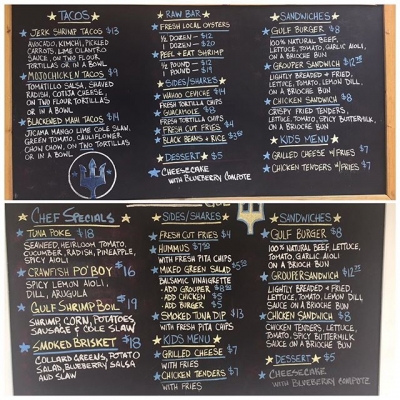 TACOS
JERK SHRIMP TACOS $13
AVOCADO, KIMCHI, PICKLED
CARROTS, LIME CILANTRO
SAUCE, ON TWO FLOUR
TORTILLAS OR IN A BOWL
MOJO CHICKEN TACOS $9
TOMATILLO SALSA, SHAVED
RADISH, COTIJA CHEESE,
ON TWO FLOUR TORTILLAS
OR IN A BOWL
BLACKENED MAHI TACOS $14
JICAMA MANGO LIME COLE SLAW,
GREEN TOMATO, CAULIFLOWER
CHOW CHOW, ON TWO TORTILLAS
OR IN A BOWL
RAW BAR
FRESH LOCAL OYSTERS
½ DOZEN - $12
1 DOZEN - $20
PEEL & EAT SHRIMP
½ POUND - $12
1 POUND - $19
SIDES/SHARES
WAHOO CEVICHE $14
FRESH TORTILLA CHIPS
GUACAMOLE
FRESH TORTILLA CHIPS
FRESH CUT FRIES $4
BLACK BEANS & RICE
DESSERT $5
CHEESECAKE
WITH BLUEBERRY COMPOTE
SANDWICHES
GULF BURGER $8
100% NATURAL BEEF,
LETTUCE, TOMATO, GARLIC AIOLI,
ON A BRIOCHE BUN
GROUPER SANDWICH
LIGHTLY BREADED & FRIED,
LETTUCE, TOMATO, LEMON, DILL,
SAUCE, ON A BRIOCHE BUN
CHICKEN SANDWICH $8
CRISPY FRIED TENDERS,
LETTUCE, TOMATO, SPICY BUTTERMILK,
ON A BRIOCHE BUN
KIDS MENU
GRILLED CHEESE W/FRIES $7
CHICKEN TENDERS W/FRIES $7
CHEF SPECIALS
TUNA POKE $18
SEAWEED, HEIRLOOM TOMATO,
CUCUMBER, RADISH, PINEAPPLE,
SPICY AIOLI
CRAWFISH PO'BOY $16
SPICY LEMON AIOLI,
DILL, ARUGULA
GULF SHRIMP BOIL $19
SHRIMP, CORN, POTATOES,
SAUSAGE & COLE SLAW
SMOKED BRISKET $18
COLLARD GREENS, POTATO
SALAD, BLUEBERRY SALSA
AND SLAW
SIDES/SHARES
FRESH CUT FRIES $4
HUMMUS
WITH FRESH PITA CHIPS
MIXED GREEN SALAD
BALSAMIC VINAIGRETTE
- ADD GROUPER
- ADD CHICKEN $5
- ADD BURGER $5
SMOKED TUNA DIP $13
WITH FRESH PITA CHIPS
KIDS MENU
GRILLED CHEESE $7
WITH FRIES
CHICKEN TENDERS $7
WITH FRIES
SANDWICHES
GULF BURGER $8
100% NATURAL BEEF, LETTUCE,
TOMATO, GARLIC AIOLI
ON A BRIOCH BUN
GROUPER SANDWICH
LIGHTLY BREADED & FRIED,
LETTUCE, TOMATO, LEMON DILL
SAUCE ON A BRIOCHE BUN
CHICKEN SANDWICH $8
CHICKEN TENDERS, LETTUCE,
TOMATO, SPICY BUTTERMILK
SAUCE ON A BRIOCHE BUN
DESSERT $5
CHEESECAKE
WITH BLUEBERRY COMPOTE